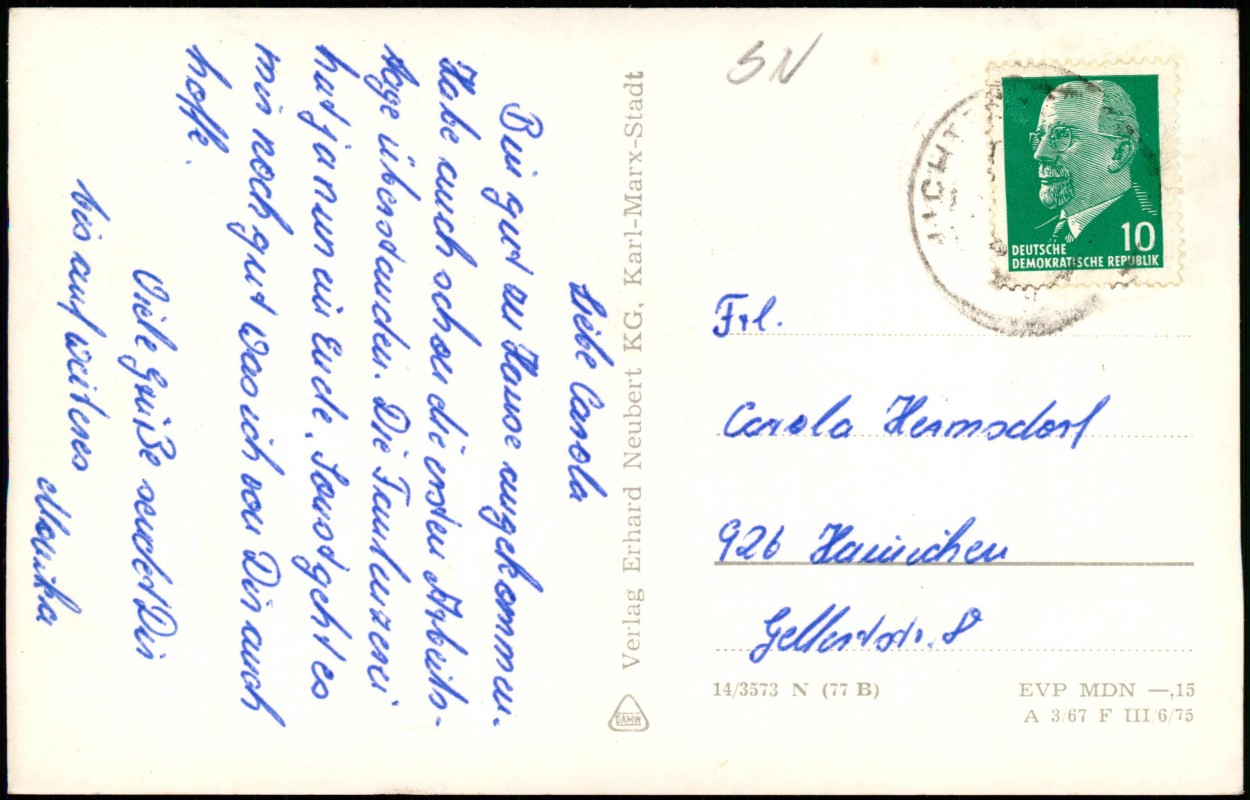 Liebe Carola
Bin gut zu Hause angekommen.
Habe auch schon die ersten Arbeits-
tage überstanden. Die Faulenzerei
hat ja nun ein Ende. Sonst geht es
mir noch gut was ich von Dir auch
hoffe.
Viele Grüße sendet Dir
bis auf weiteres
Monika
Verlag Erhard Neubert KG, Karl-Marx-Stadt
DAMW
SN
10
DEUTSCHE
DEMOKRATISCHE REPUBLIK
Frl.
Carola Hermsdorf
926 Hainichen
Gellertstr. 8
14/3573 N (77 B)
EVP MDN —,15
A 3/67 F III/6/75